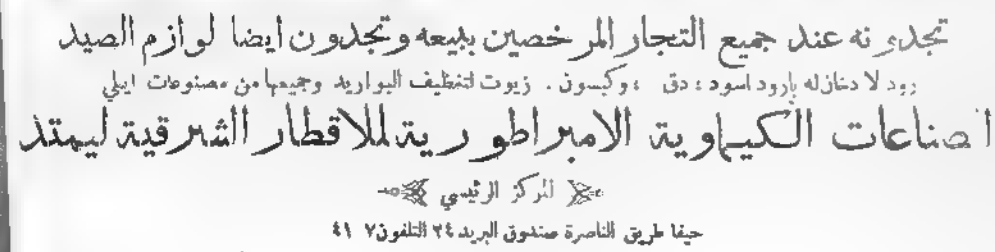 تجدونه عند جميع التجار المرخصين ببيعه وتجدون أيضا لوازم الصيد
رود لا دخان له بارود اسود ؛ دق ، وكبسون . زيوت لتنظيف البواريد وجميعها من مصنوعات ايلي
الصناعات الكيماوية الامبراطورية للاقطار الشرقية ليمتد
المركز الرئيسي
حيفا طريق الناصرة صندوق البريد ٢٤ التلفون ٤١٧